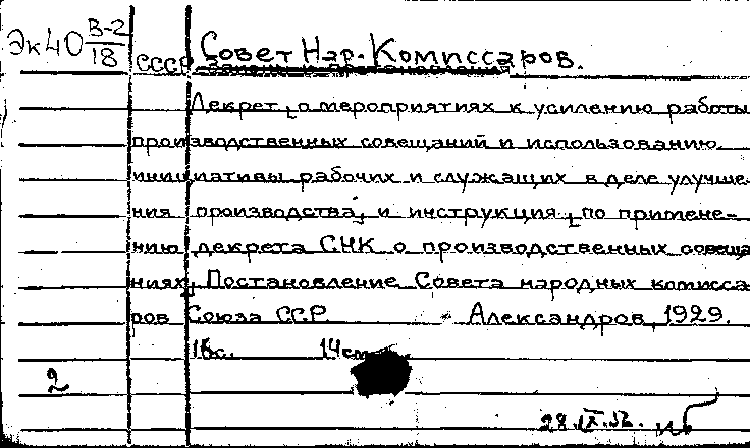 Эк40 В-2/18
СССР Совет Нар. Комиссаров.
Декрет о мероприятиях к усилению работы
производственных совещаний и использованию
инициативы рабочих и служащих в деле улучше-
ния производства, и инструкция по примене-
нию декрета СНК о производственных совеща
ниях, Постановление Совета народных комисса
ров Союза ССР Александров, 1929.
16с. 14см
2
28.IX.52.